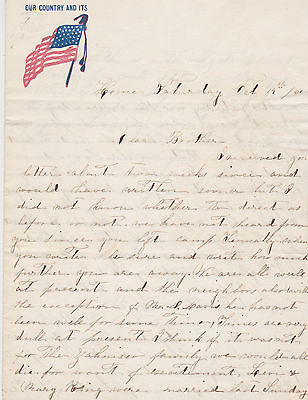 OUR COUNTRY AND ITS
Home Saturday Oct 19th
Dear Brother
I received you
letter about two weeks since and
would have written sooner but I
did not know whether to direct as
before or not. we have not heard from
you since you left camp Kennedy
you write be sure and write how much
further you are away. We are all well
at present and the neighbors also with
the exception of Mr Davis he has not
been well for some time. Times are very
dull at present I think if it was not
for the Johnson family we would all
die for want of excitement,
Mary King were married last Sunday